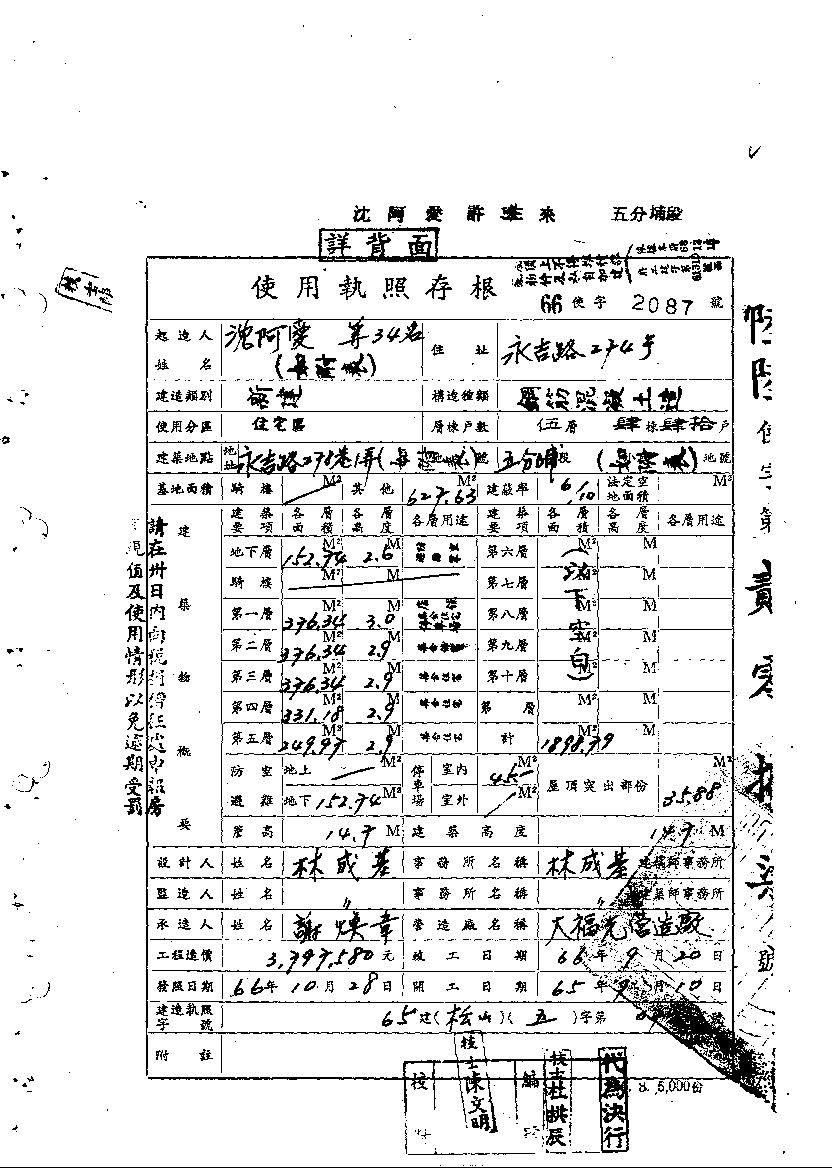 沈阿愛 許 來 五分埔段
詳背面
使用執照存根
66 使字 2087 號
起造人姓名 沈阿愛 等34名 住址 永吉路274号
建造類別 新造 構造種類 鋼筋混凝土造
使用分區 住宅區 層棟戶數 伍層 肆棟肆拾戶
建築地點 地址 永吉路278巷1弄 號 五分埔段 地號
基地面積 騎樓 M² 其他 627.63 M² 建蔽率 6/10 法定空地面積 M²
建築概要
建築要項 各層面積 各層高度 各層用途 建築要項 各層面積 各層高度 各層用途
地下層 152.74 M² 2.6 M 第六層 M² M
騎樓 M² M 第七層 M² M
第一層 376.34 M² 3.0 M 第八層 M² M
第二層 376.34 M² 2.9 M 第九層 M² M
第三層 376.34 M² 2.9 M 第十層 M² M
第四層 331.18 M² 2.9 M 第 層 M² M
第五層 249.97 M² 2.9 M 計 1898.79 M² M
(以下空白)
防空避難 地上 M² 停車場 室內 45 M² 屋頂突出部份 35.88 M²
地下 152.74 M² 室外 M²
簷高 14.7 M 建築高度 14.7 M
設計人 姓名 林成基 事務所名稱 林成基建築師事務所
監造人 姓名 〃 事務所名稱 〃 建築師事務所
承造人 姓名 謝煥章 營造廠名稱 大福元營造廠
工程造價 3,797,580元 竣工日期 66年9月20日
發照日期 66年10月28日 開工日期 65年9月10日
建造執照字號 65建(松山)(五)字第 號
附註
請在卅日內向稅捐稽征處申報房
屋現值及使用情形以免逾期受罰
校對
技士陳文明
編號
代為決行
8. 5,000份